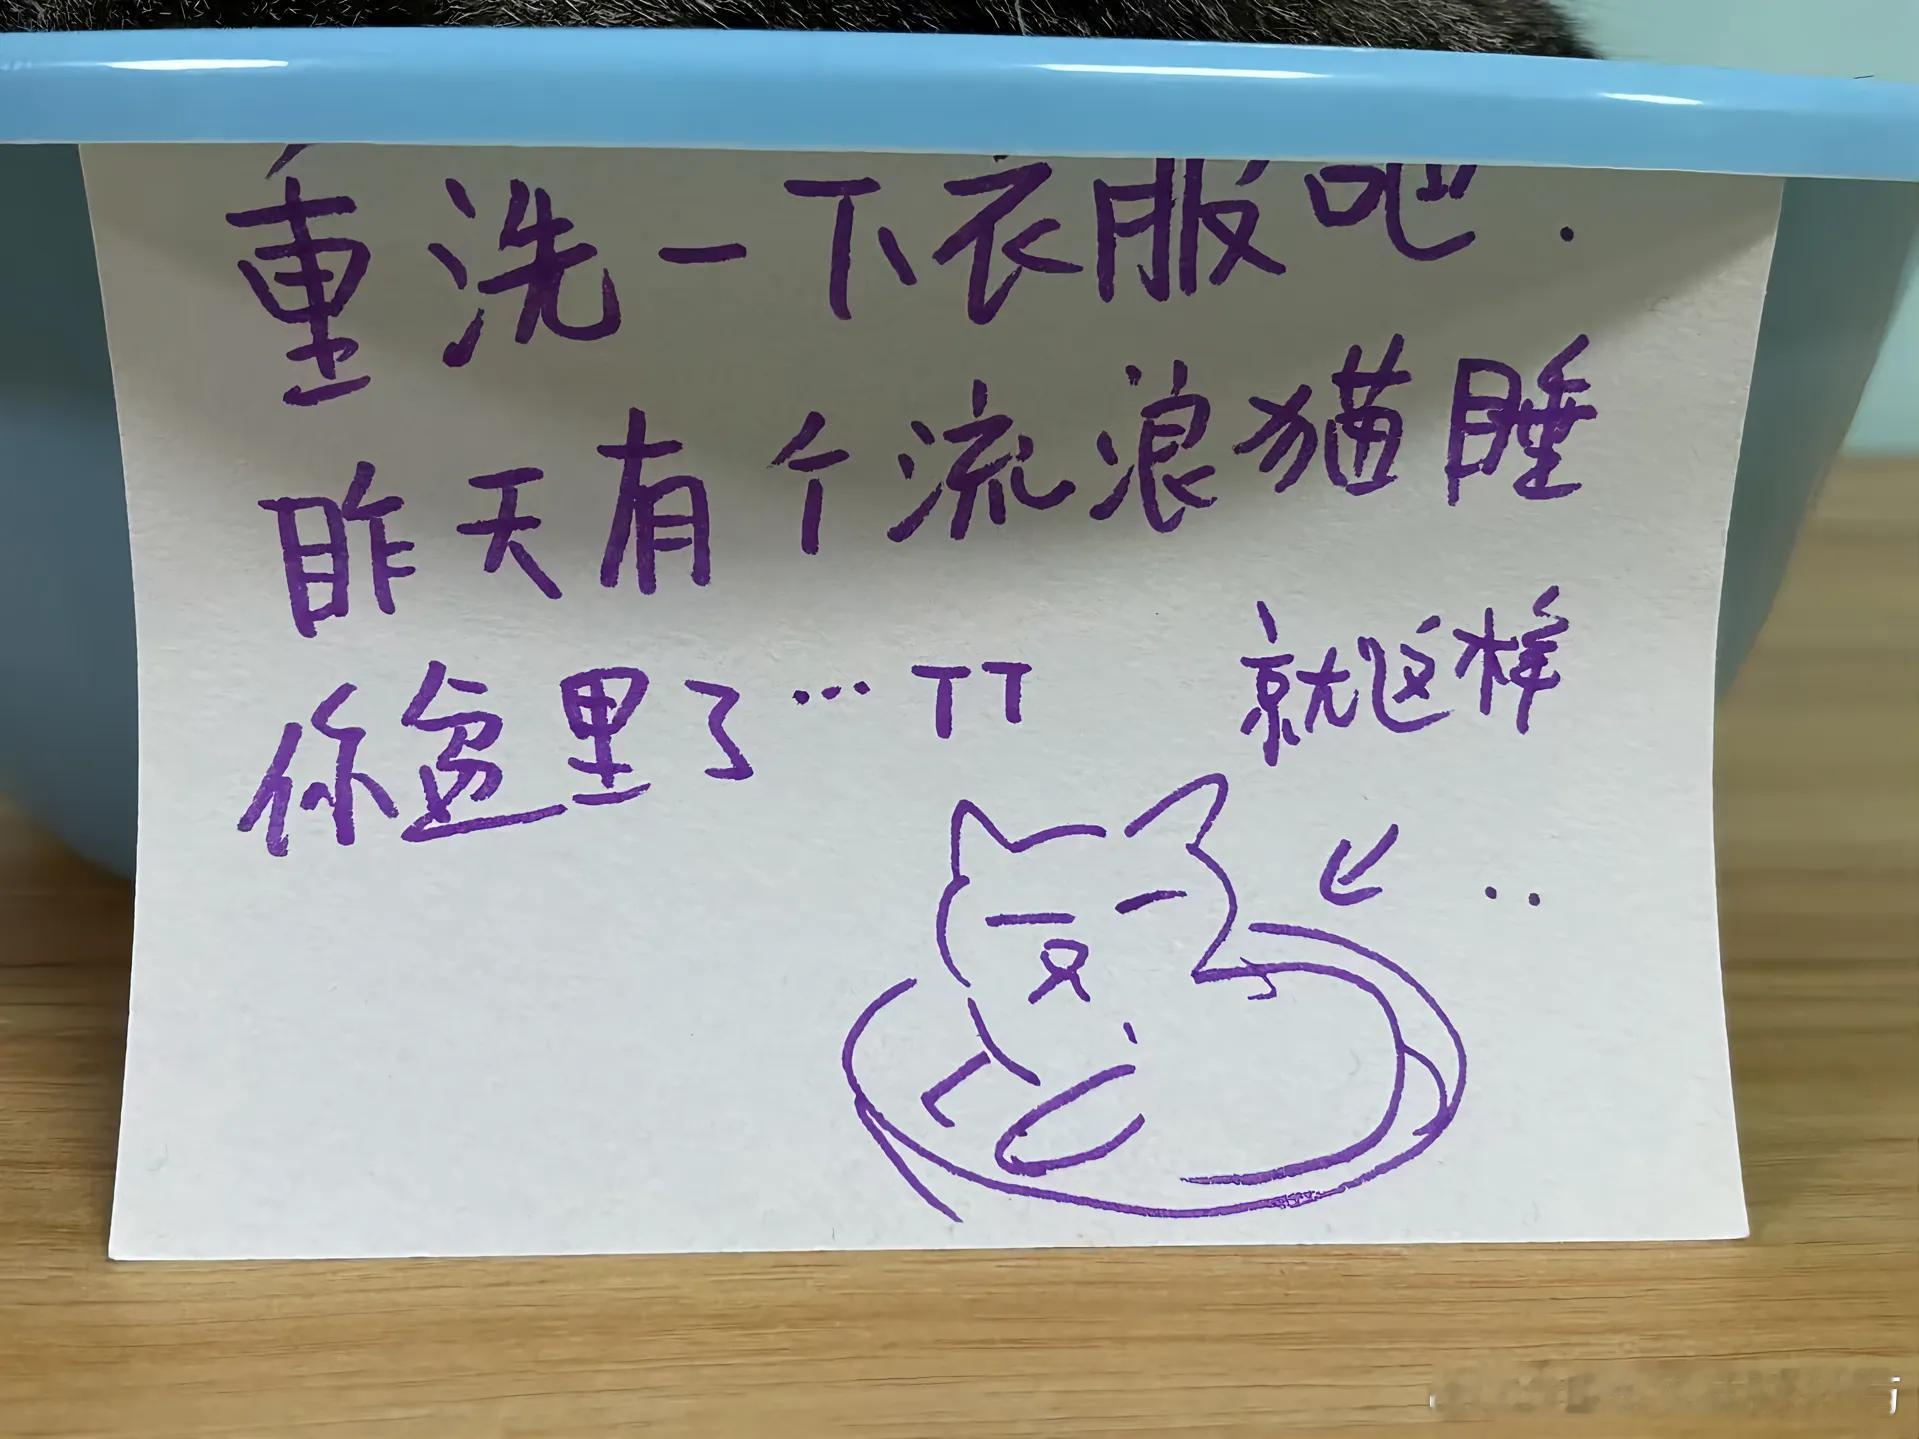 重洗一下衣服吧.
昨天有个流浪猫睡
你盆里了… TT
就这样